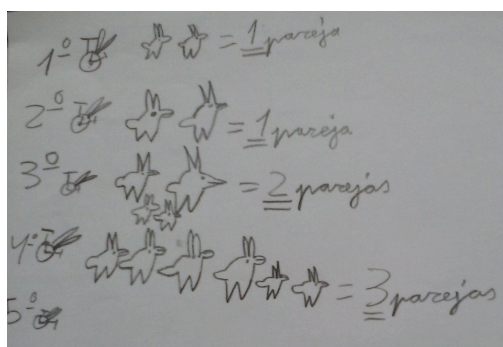 1º = 1 pareja
2º = 1 pareja
3º = 2 parejas
4º = 3 parejas
5º